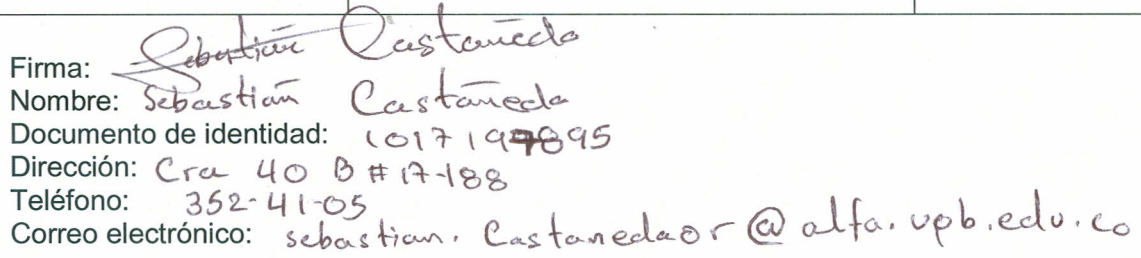 Firma: Sebastián Castañeda
Nombre: Sebastián Castañeda
Documento de identidad: 1017197895
Dirección: Cra 40 B # 17-188
Teléfono: 352-41-05
Correo electrónico: sebastian.Castanedaor@alfa.upb.edu.co